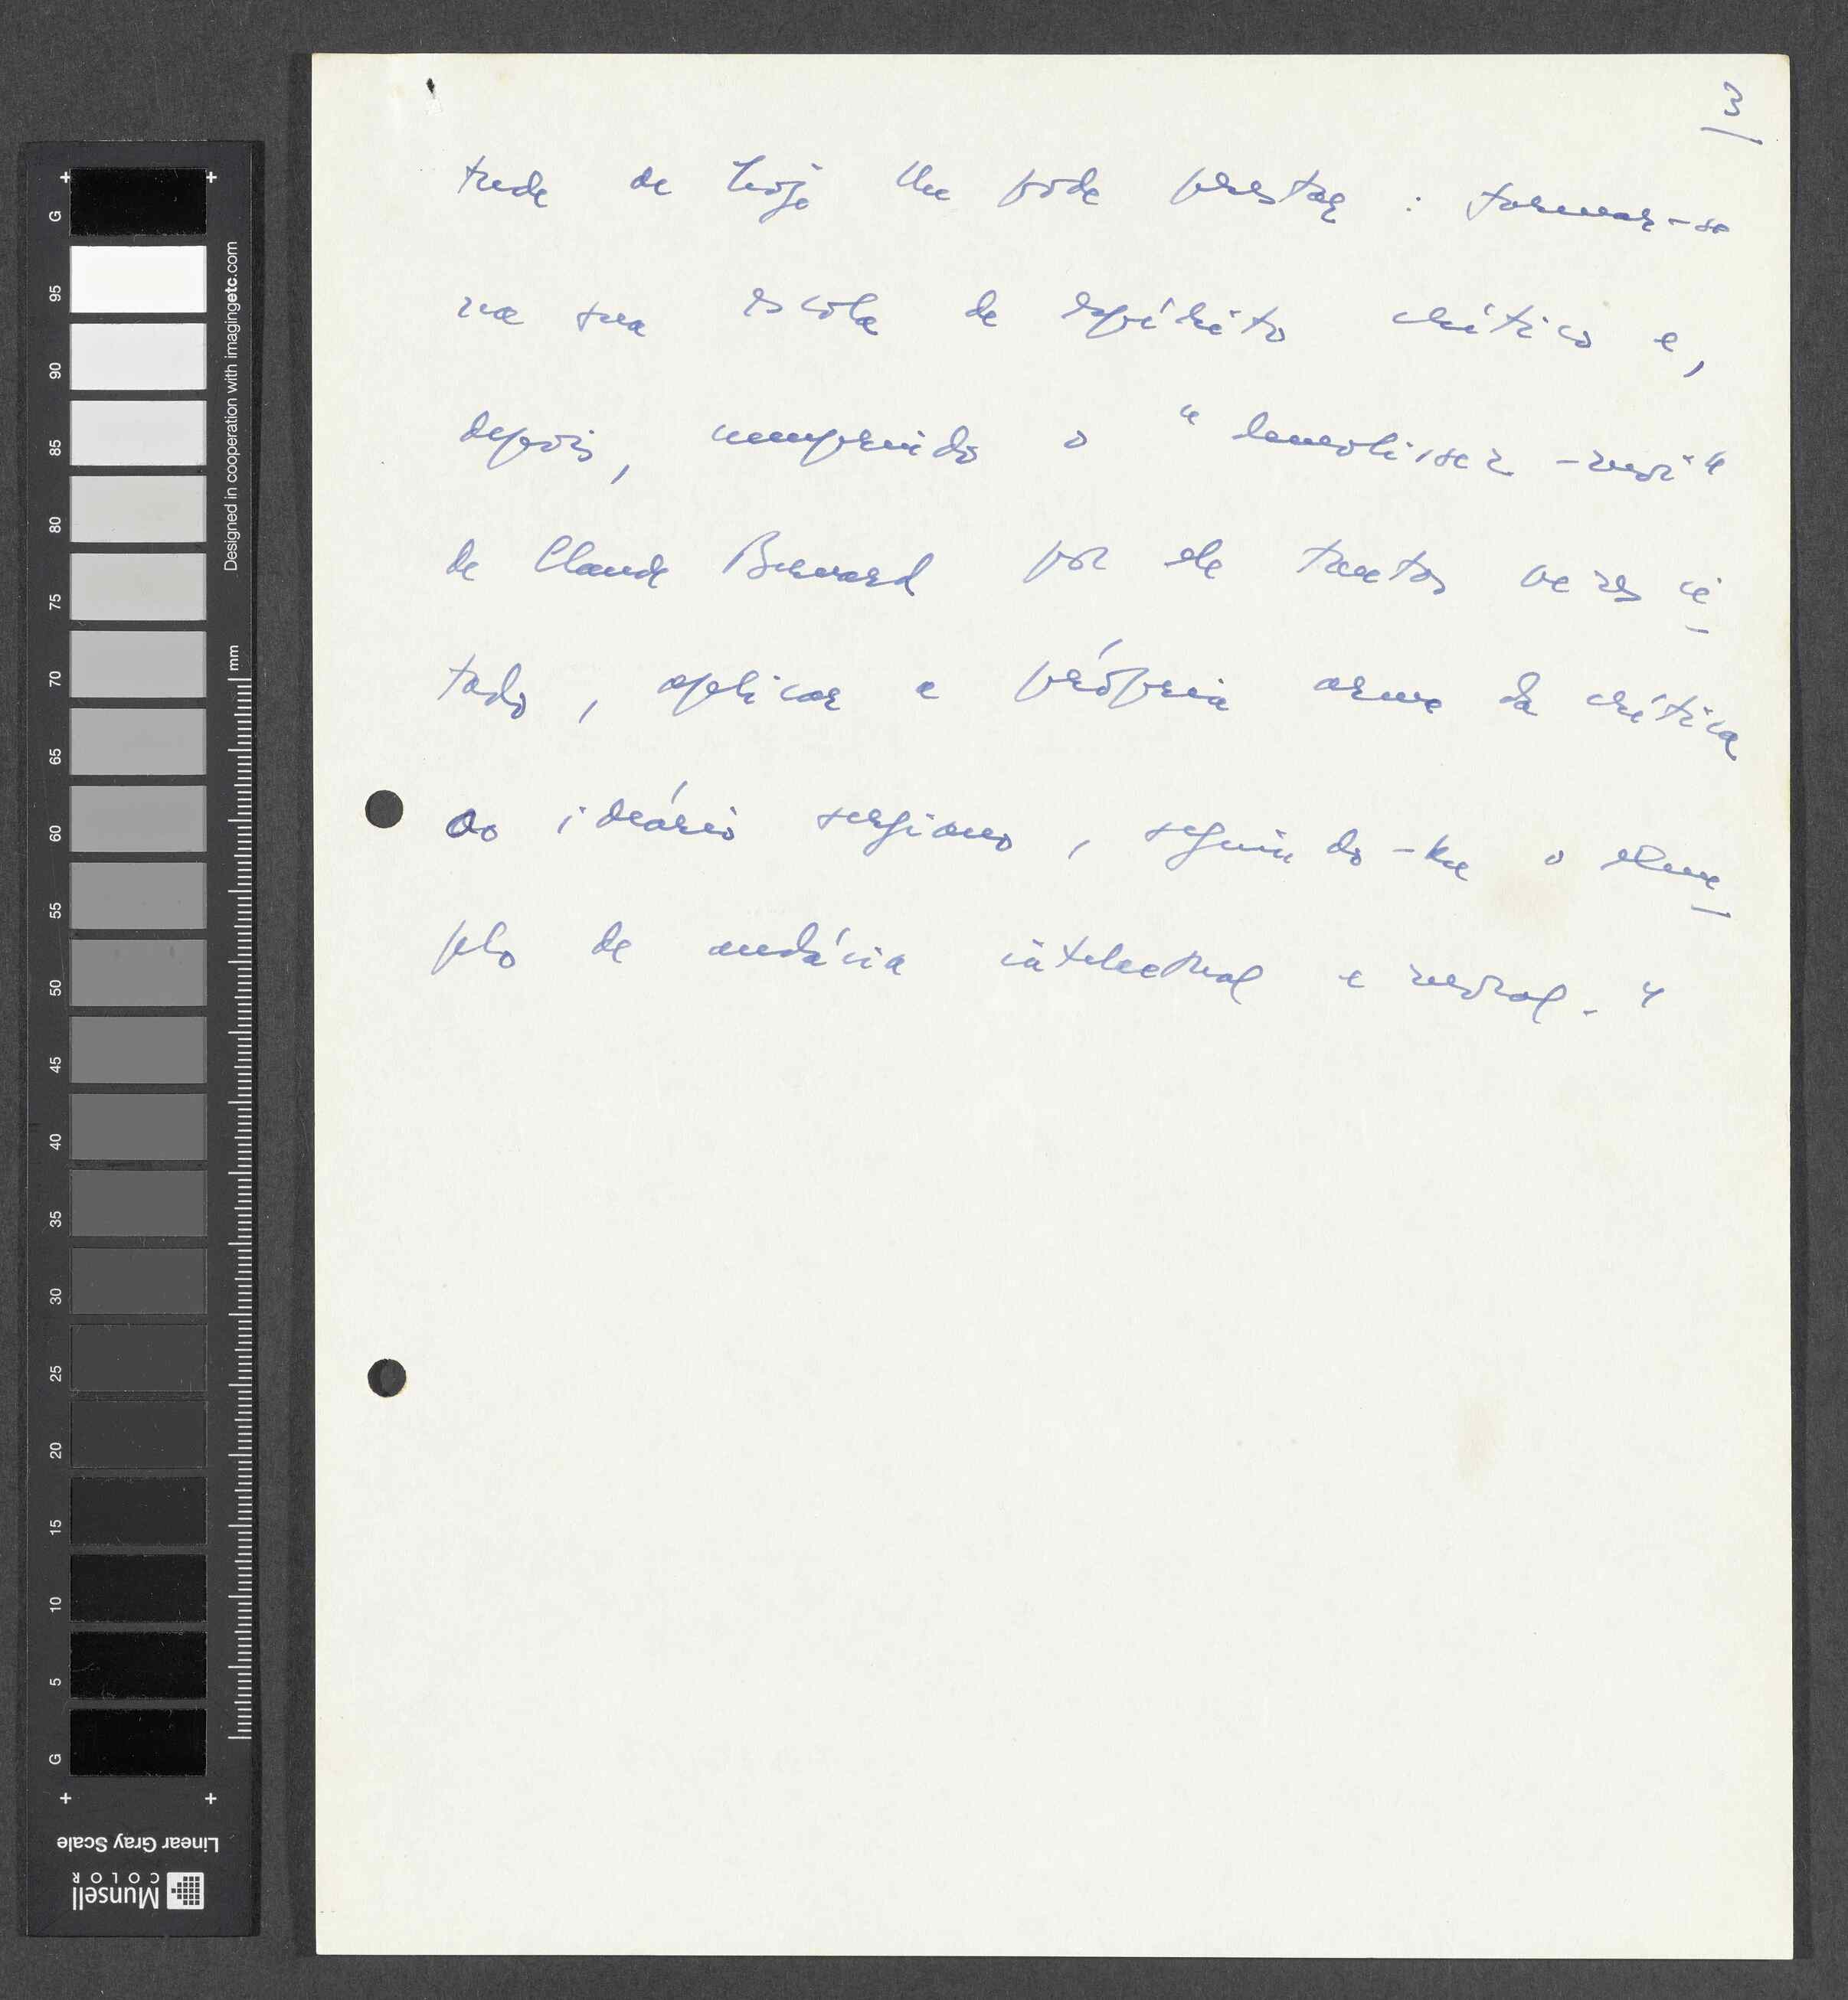 3
tude de hoje lhe pode prestar : formar-se
na sua escola de espírito crítico e,
depois, cumprindo o "demolissez-moi"
de Claude Bernard por ele tantas vezes ci
tado, aplicar a própria arma da crítica
ao ideário sergiano, seguindo-lhe o exem
plo de audácia intelectual e moral."
Designed in cooperation with imagingetc.com
mm
G
95
90
85
80
75
70
65
60
55
50
45
40
35
30
25
20
15
10
5
G
Linear Gray Scale
Munsell
COLOR